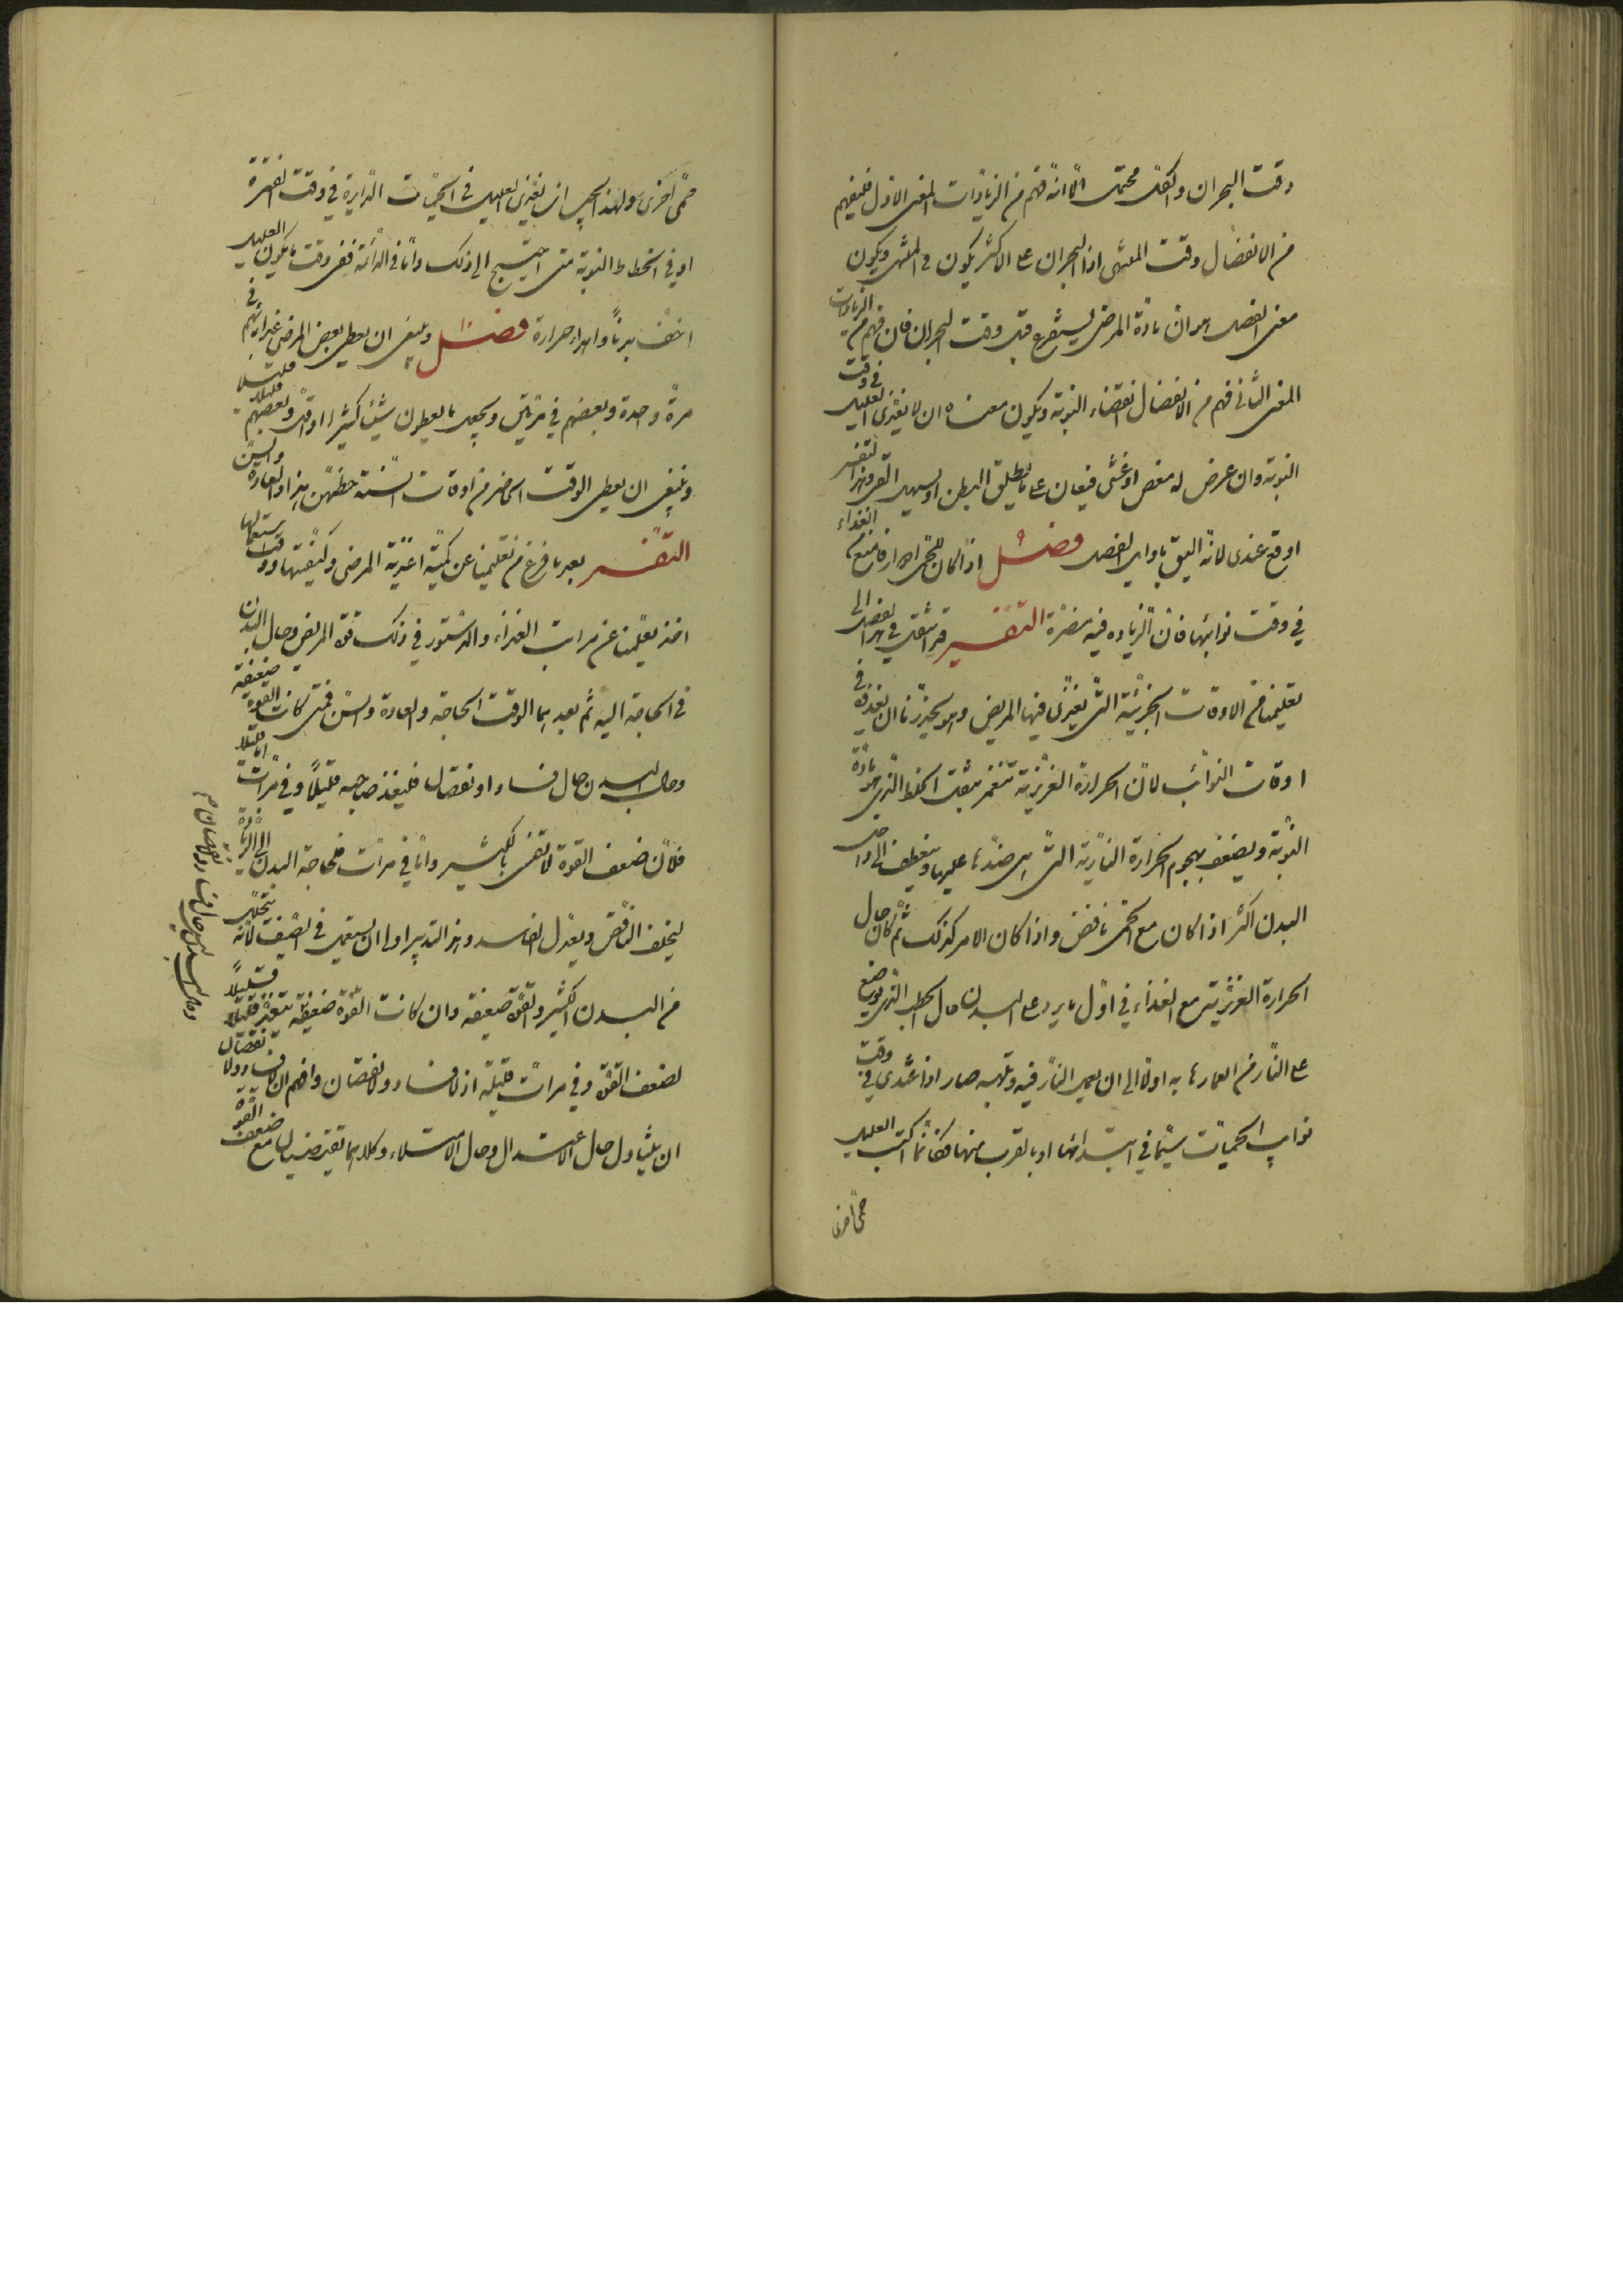 وقت البحران والكل محتمل الا انه فهم من الزيادات المعنى الاول فليفهم
من الانفصال وقت المنتهى اذ البحران على الاكثر يكون في المنتهى ويكون
معنى الفصل هو ان مادة المرض يستفرغ قبل وقت البحران فان فهم من الزيادات
المعنى الثاني فهم من الانفصال انقضاء النوبة ويكون معناه ان لا يغذى العليل في وقت
النوبة وان عرض له مغص او غشى فيعان على ما يطلق البطن او يسهل القى وهذا التفسير
اوقع عندى لانه اليق باوايل الفصل فصل اذا كان للحمى ادوار فامنع من الغذاء
في وقت نوائبها فان الزياده فيه مضرة التفسير قد انتقل في هذا الفصل الى
تعليمنا من الاوقات الجزئية التى يغذى فيها المريض وهو يحذرنا ان نغذوه في
اوقات النوائب لان الحرارة الغريزية تنغمر بثقل الخلط الذى هو مادة
النوبة ويضعف بهجوم الحرارة النارية التى هى ضدها عليها وينعطف الى داخل
البدن اكثر اذا كان مع الحمى نافض واذا كان الامر كذلك ثم كان حال
الحرارة الغريزية مع الغذاء في اول ما يرد على البدن حال الحطب الذى يوضع
على النار من اضمارها به اولا الى ان يعمل النار فيه وتلهبه صار اذا غذى في وقت
نوايب الحميات سيما في ابتدائها او بالقرب منها فكانما اكتسب العليل
حمى اخرى
حمى اخرى ولهذا يجب ان يغذى العليل في الحميات الدايرة في وقت الفترة
او في انحطاط النوبة متى احتيج الى ذلك واما في الدائمة ففى وقت ما يكون العليل
اخف بدنا واهدا حرارة فصل وينبغى ان يعطى بعض المرضى غذائهم في
مرة واحدة وبعضهم في مرتين ويجعل ما يعطون شيئا كثيرا او اقل وبعضهم قليلا قليلا
وينبغى ان يعطى الوقت الحاضر من اوقات السنة حظهن هذا والعادة والسن
التفسير بعد ما فرغ من تعليمنا عن كمية اغذية المرضى وكيفيتها ووقت استعمالها
اخذ يعلمنا عن مراتب الغذاء والدستور في ذلك قوة المريض وحال البدن
في الحاجة اليه ثم بعدهما الوقت الحاجة والعادة والسن فمتى كانت القوة ضعيفة
وحال البدن حال فساد او نقصان فليغذ صاحبه قليلا وفي مرات اما قليلا
فلان ضعف القوة لا تفى بالكثير واما في مرات فلحاجة البدن الى الزيادة
ليخلف الناقص ويعدل الفاسد وهذا التدبير اولى ان يستعمل في الصيف لانه يتحلل
من البدن الكثير والقوة ضعيفة وان كانت القوة ضعيفة يتغذى قليلا قليلا
لضعف القوة وفي مرات قليلة اذ لا فساد ولا نقصان وافهم ان لا فساد ولا نقصان
ان يتناول حال الاعتدال وحال الامتلاء وكلاهما يقتضيان مع ضعف القوة
وحال البدن ليس حال فساد ولا نقصان م